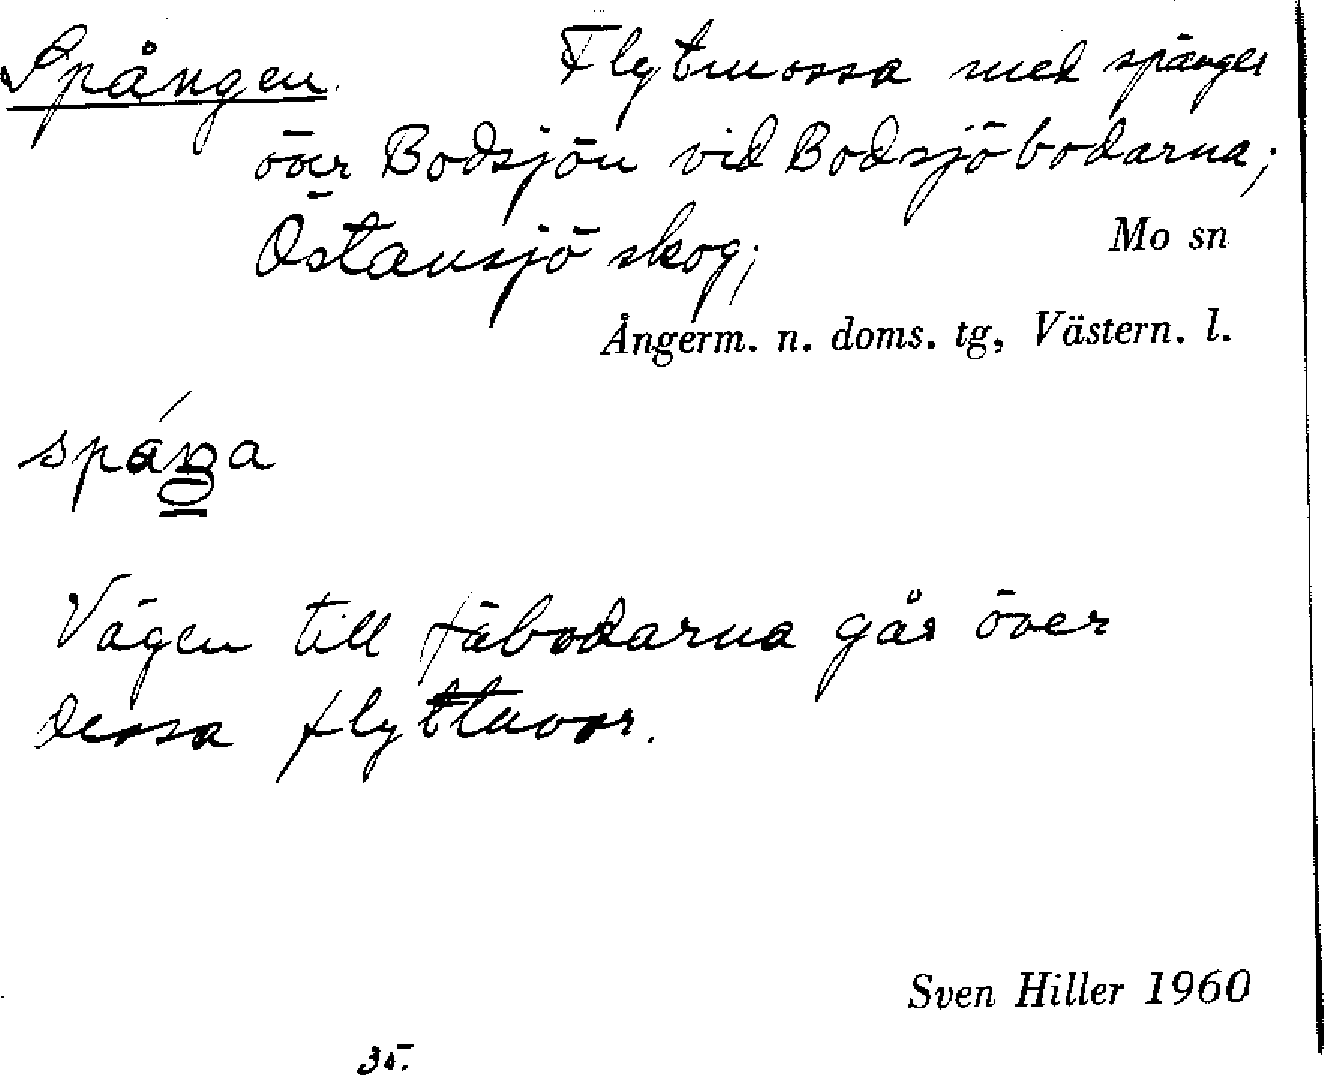 Spången. Flytmossa med spänger
över Bodsjön vid Bodsjöbodarna;
Östansjö skog; Mo sn
Ångerm. n. doms. tg, Västern. l.
Vägen till fäbodarna går över
dessa flyttuvor.
Sven Hiller 1960
35.